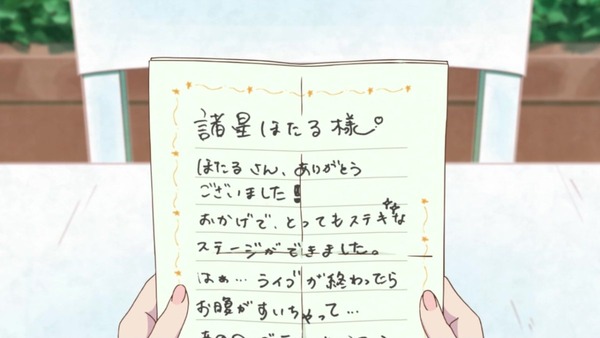 諸星ほたる様♡
ほたるさん、ありがとう
ございました!
おかげで、とってもステキな
ステージができました。
はぁ…ライブが終わったら
お腹がすいちゃって…